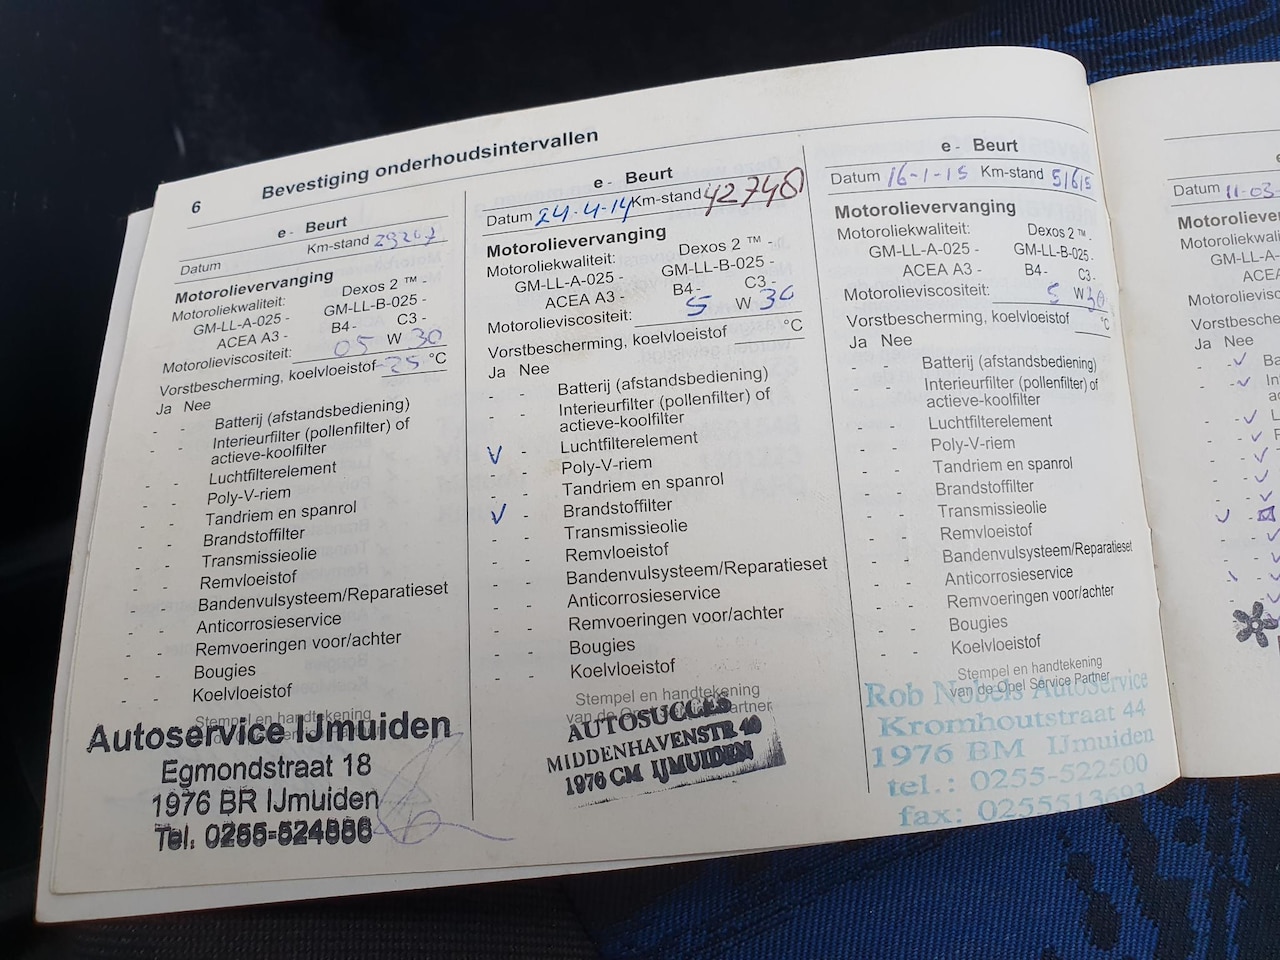 6 Bevestiging onderhoudsintervallen
e - Beurt
Datum Km-stand
Motorolievervanging
Motoroliekwaliteit: Dexos 2 ™ -
GM-LL-A-025 - GM-LL-B-025 -
ACEA A3 - B4 - C3 -
Motorolieviscositeit: 05 W 30
Vorstbescherming, koelvloeistof -25 °C
Ja Nee
- - Batterij (afstandsbediening)
- - Interieurfilter (pollenfilter) of
actieve-koolfilter
- - Luchtfilterelement
- - Poly-V-riem
- - Tandriem en spanrol
- - Brandstoffilter
- - Transmissieolie
- - Remvloeistof
- - Bandenvulsysteem/Reparatieset
- - Anticorrosieservice
- - Remvoeringen voor/achter
- - Bougies
- - Koelvloeistof
Stempel en handtekening
Autoservice IJmuiden
Egmondstraat 18
1976 BR IJmuiden
Tel. 0255-524886
e - Beurt
Datum 24-4-14 Km-stand 42748
Motorolievervanging
Motoroliekwaliteit: Dexos 2 ™ -
GM-LL-A-025 - GM-LL-B-025 -
ACEA A3 - B4 - C3 -
Motorolieviscositeit: 5 W 30
Vorstbescherming, koelvloeistof °C
Ja Nee
- - Batterij (afstandsbediening)
- - Interieurfilter (pollenfilter) of
actieve-koolfilter
V - Luchtfilterelement
- - Poly-V-riem
- - Tandriem en spanrol
V - Brandstoffilter
- - Transmissieolie
- - Remvloeistof
- - Bandenvulsysteem/Reparatieset
- - Anticorrosieservice
- - Remvoeringen voor/achter
- - Bougies
- - Koelvloeistof
Stempel en handtekening
van de Opel Service Partner
AUTOSUCCES
MIDDENHAVENSTR 40
1976 CM IJMUIDEN
e - Beurt
Datum 16-1-15 Km-stand 51615
Motorolievervanging
Motoroliekwaliteit: Dexos 2 ™ -
GM-LL-A-025 - GM-LL-B-025 -
ACEA A3 - B4 - C3 -
Motorolieviscositeit: 5 W 30
Vorstbescherming, koelvloeistof °C
Ja Nee
- - Batterij (afstandsbediening)
- - Interieurfilter (pollenfilter) of
actieve-koolfilter
- - Luchtfilterelement
- - Poly-V-riem
- - Tandriem en spanrol
- - Brandstoffilter
- - Transmissieolie
- - Remvloeistof
- - Bandenvulsysteem/Reparatieset
- - Anticorrosieservice
- - Remvoeringen voor/achter
- - Bougies
- - Koelvloeistof
Stempel en handtekening
van de Opel Service Partner
Rob Nobels Autoservice
Kromhoutstraat 44
1976 BM IJmuiden
tel.: 0255-522500
fax: 0255513693
Datum 11-03-
Ja Nee